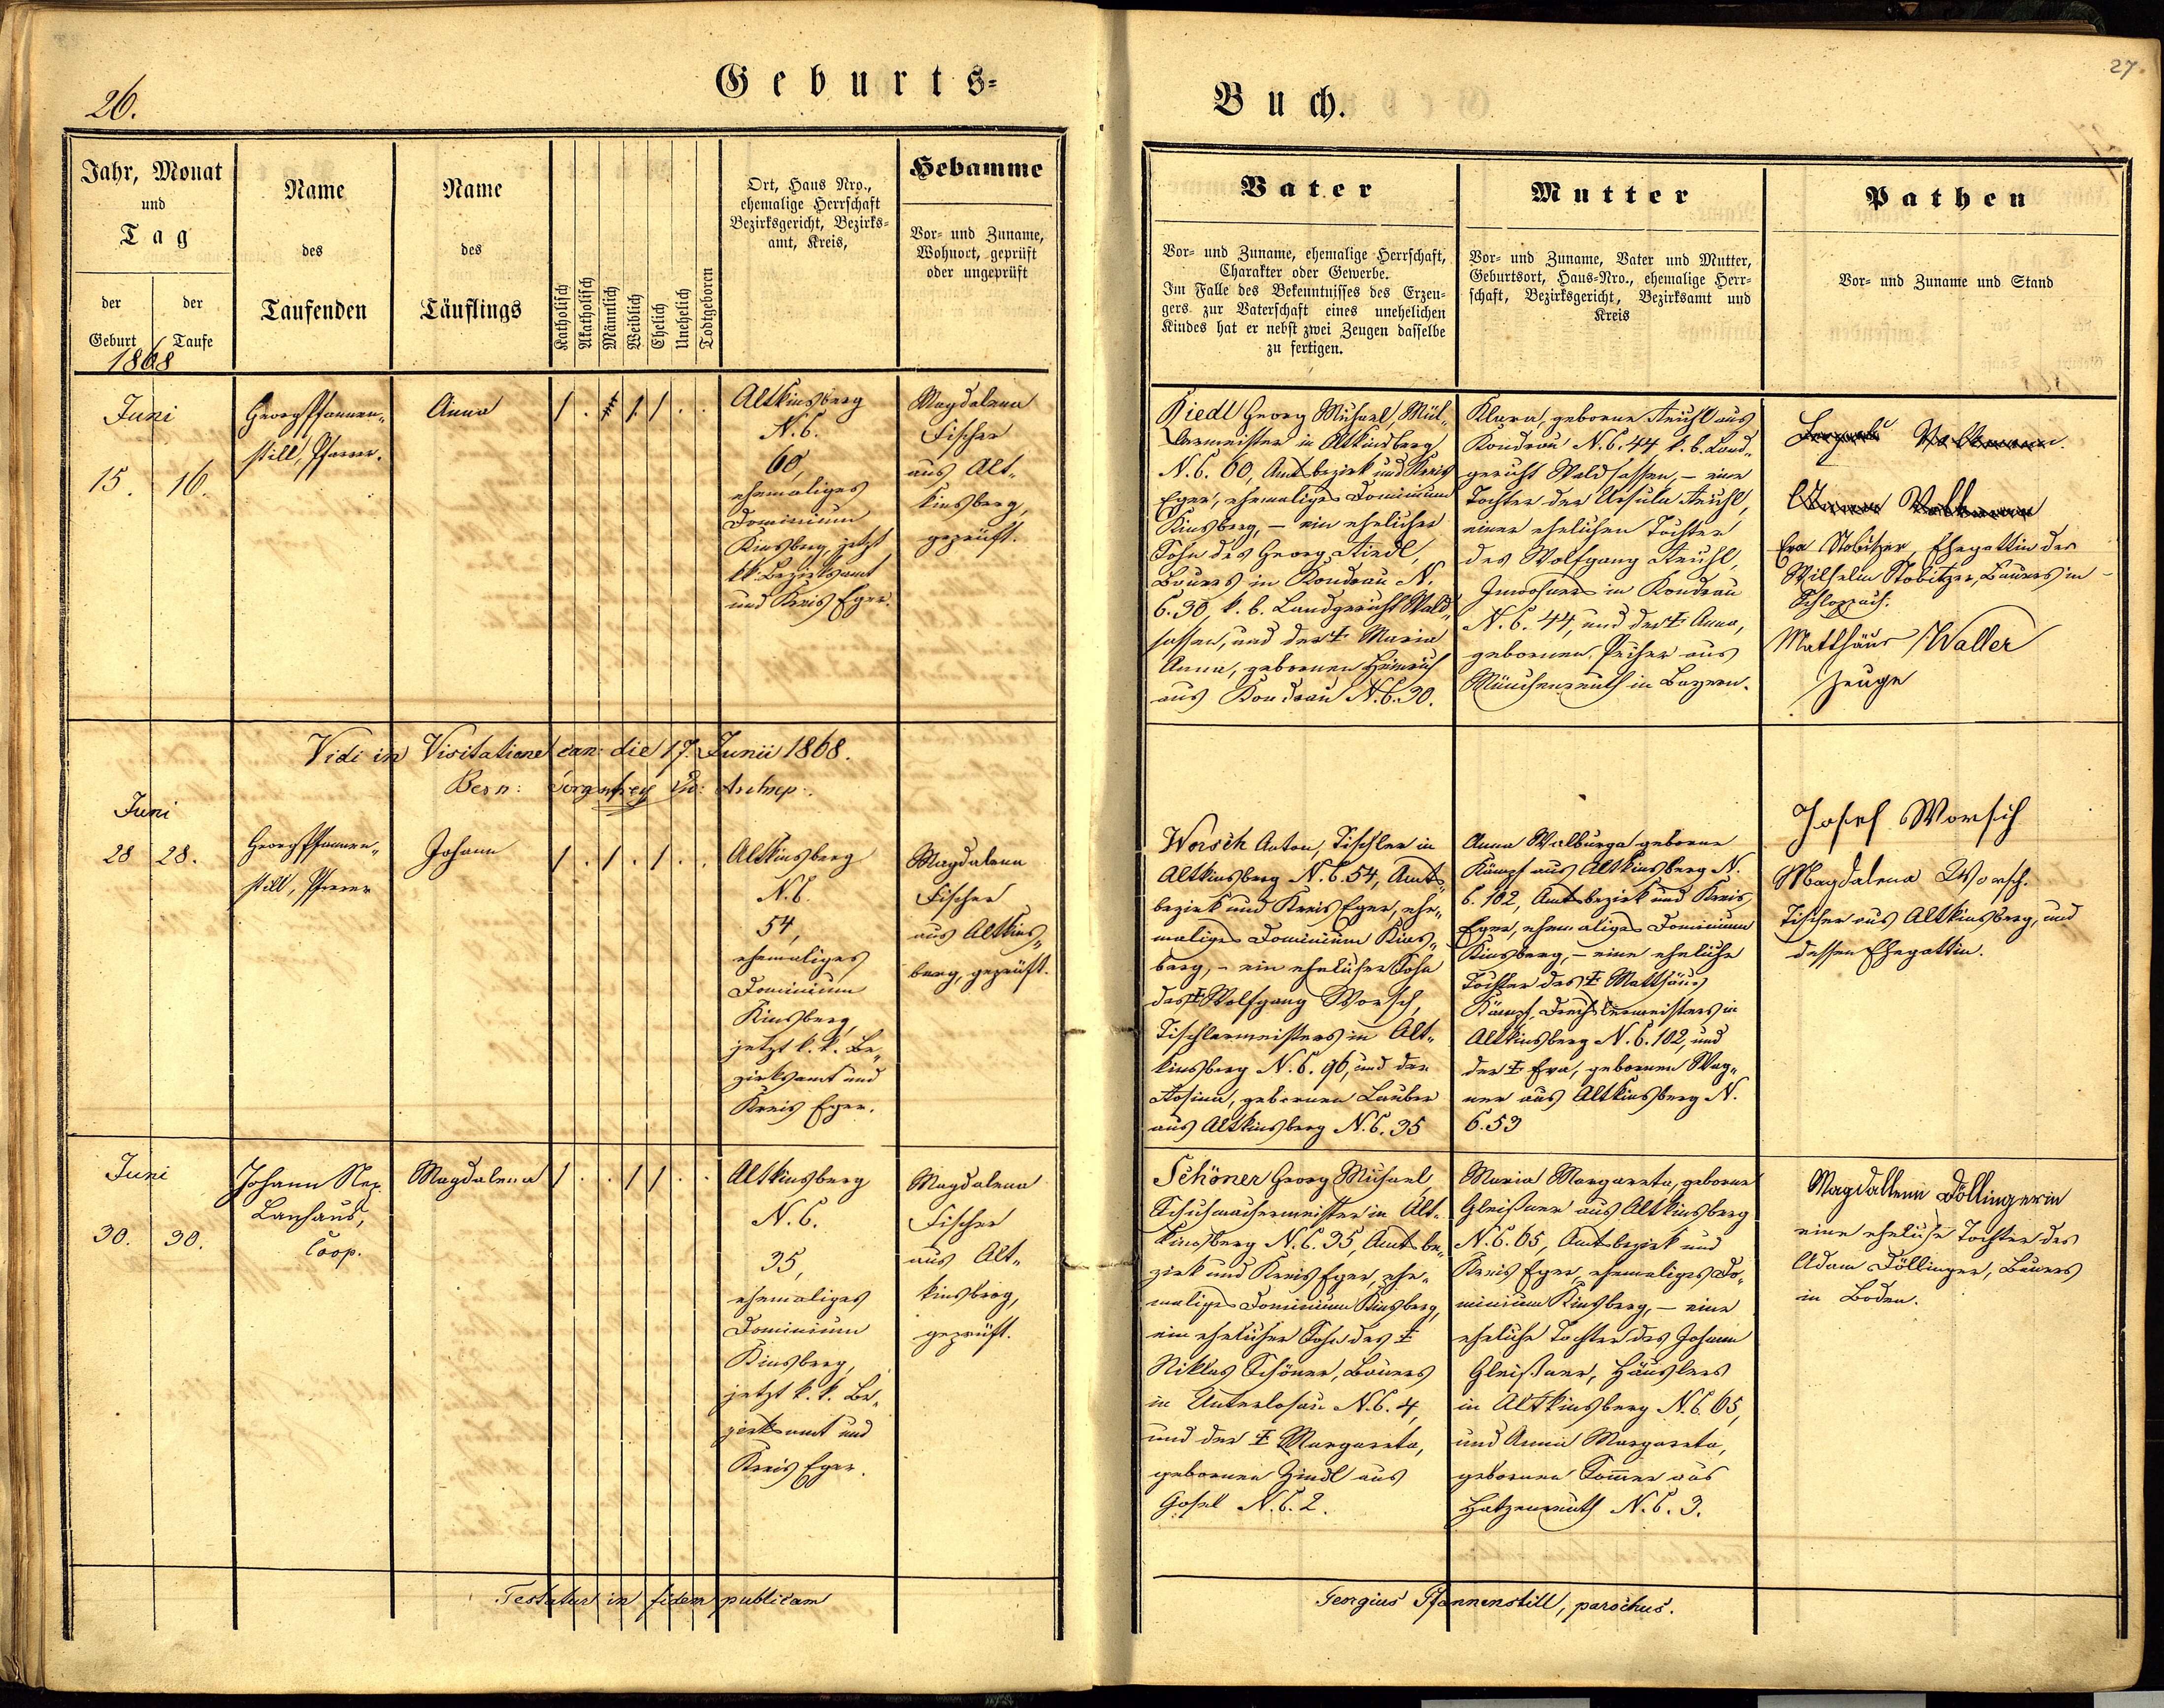 26.
Geburts=
Jahr, Monat
und
Tag
der Geburt
der Taufe
1868
Name
des
Taufenden
Name
des
Täuflings
Katholisch
Akatholisch
Männlich
Weiblich
Ehelich
Unehelich
Todtgeboren
Ort, Haus Nro.,
ehemalige Herrschaft
Bezirksgericht, Bezirks-
amt, Kreis,
Hebamme
Vor- und Zuname,
Wohnort, geprüft
oder ungeprüft
Juni
15. 16.
Georg Pfannen-
still, Pfarrer.
Anna
Altkinsberg
N.C.
60,
ehemaliges
Dominium
Kinsberg, jetzt
k.k. Bezirksamt
und Kreis Eger.
Magdalena
Fischer
aus Alt-
kinsberg,
geprüft.
Vidi in Visitatione can: die 17. Junii 1868.
Juni
28 28.
Georg Pfannen-
still, Pfarrer
Johann
Altkinsberg
N.C.
54,
ehemaliges
Dominium
Kinsberg,
jetzt k.k. Be-
zirksamt und
Kreis Eger.
Magdalena
Fischer
aus Altkins-
berg, geprüft.
Juni
30. 30.
Johann Nep.
Lanhaus,
Coop.
Magdalena
Altkinsberg
N.C.
35,
ehemaliges
Dominium
Kinsberg,
jetzt k.k. Be-
zirksamt und
Kreis Eger.
Magdalena
Fischer
aus Alt-
kinsberg,
geprüft.
Testatur in fidem publicam
27.
Buch.
Vater
Vor- und Zuname, ehemalige Herrschaft,
Charakter oder Gewerbe.
Im Falle des Bekenntnisses des Erzeu-
gers zur Vaterschaft eines unehelichen
Kindes hat er nebst zwei Zeugen dasselbe
zu fertigen.
Mutter
Vor- und Zuname, Vater und Mutter,
Geburtsort, Haus-Nro., ehemalige Herr-
schaft, Bezirksgericht, Bezirksamt und
Kreis
Pathen
Vor- und Zuname und Stand
Riedl Georg Michael, Mül-
lermeister in Altkinsberg
N.C. 60, Amtsbezirk und Kreis
Eger, ehemaliges Dominium
Kinsberg, – ein ehelicher
Sohn des Georg Riedl,
Bauers in Kondrau N.
C. 30, k. b. Landgericht Wald-
sassen, und der † Maria
Anna, gebornen Heinrich
aus Kondrau N.C. 30.
Klara, geborne
Kondrau N.C. 44, k. b. Land-
gericht Waldsassen, – eine
Tochter der Ursula
einer ehelichen Tochter
des Wolfgang
Inwohners in Kondrau
N.C. 44, und der † Anna,
gebornen aus
Münchenreuth in Bayern.
Eva Stobitzer, Ehegattin des
Wilhelm Stobitzer, Bauers in
Matthäus Waller
Zeuge
Worsch Anton, Tischler in
Altkinsberg N.C. 54, Amts-
bezirk und Kreis Eger, ehe-
maliges Dominium Kins-
berg, – ein ehelicher Sohn
des † Wolfgang Worsch,
Tischlermeisters in Alt-
kinsberg N.C. 96, und der
Rosina, gebornen Lauber
aus Altkinsberg N.C. 35
Anna Walburga geborne
Kämpf aus Altkinsberg N.
C. 102, Amtsbezirk und Kreis
Eger, ehemaliges Dominium
Kinsberg, – eine eheliche
Tochter des † Matthäus
Kämpf, Drechslermeisters in
Altkinsberg N.C. 102, und
der † Eva, gebornen Wag-
ner aus Altkinsberg N.
C. 53
Josef Worsch
Magdalena Worsch.
Tischler aus Altkinsberg, und
dessen Ehegattin.
Schöner Georg Michael,
Schuhmachermeister in Alt-
kinsberg N.C. 35, Amtsbe-
zirk und Kreis Eger, ehe-
maliges Dominium Kinsberg,
ein ehelicher Sohn des †
Niklas Schöner, Bauers
in Unterlosau N.C. 4,
und der † Margareta,
gebornen Zindl aus
Gosel N.C. 2.
Maria Margareta, geborne
Gleißner aus Altkinsberg
N.C. 65, Amtsbezirk und
Kreis Eger, ehemaliges Do-
minium Kinsberg, – eine
eheliche Tochter des Johann
Gleißner, Häuslers
in Altkinsberg N.C. 65,
und Anna Margareta,
gebornen Sommer aus
Hatzenreuth N.C. 3.
Magdallena Döllingerin
eine eheliche Tochter des
Adam Döllinger, Bauers
in Boden.
Georgius Pfannenstill, parochus.